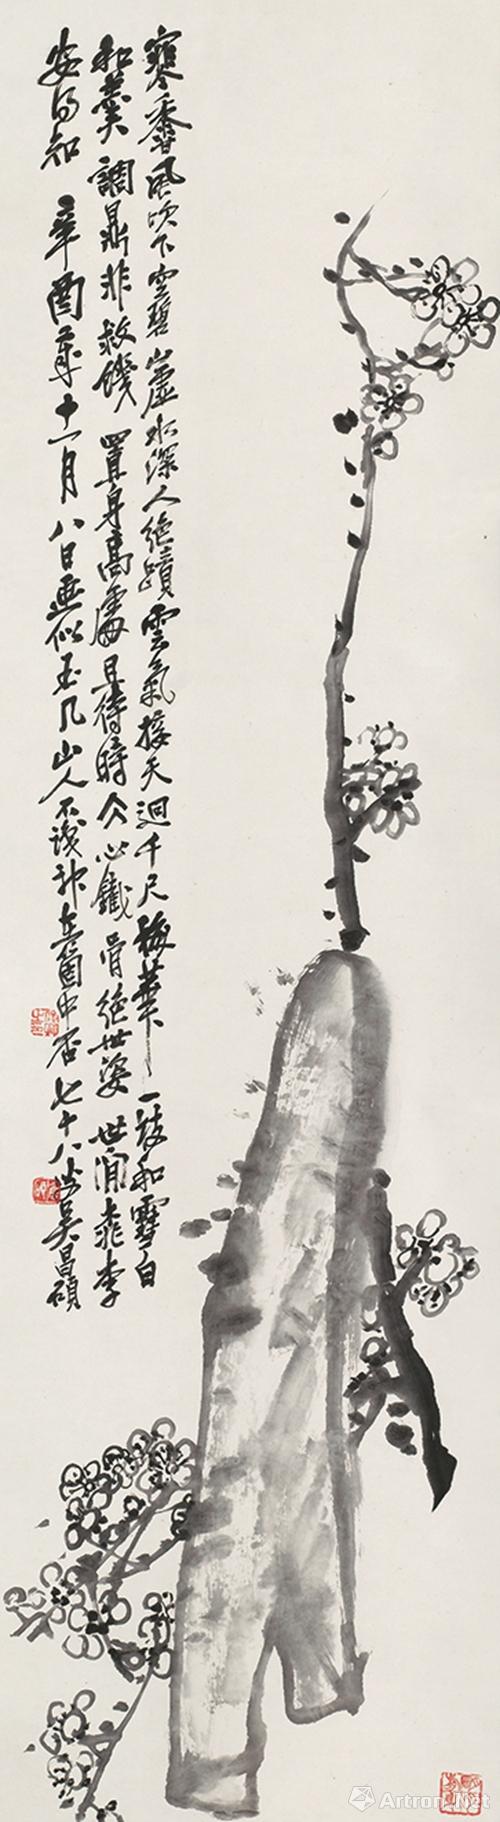 寒香風吹下空碧山虛水深人絕蹟雲氣接天迥千尺梅華一枝和雪白
和羹調鼎非救饑置身高處且待時冬心鐵骨絕世姿世間桃李
安得知 辛酉年十一月八日画似玉几山人不識神在箇中否七十八叟吳昌碩
Artron.Net